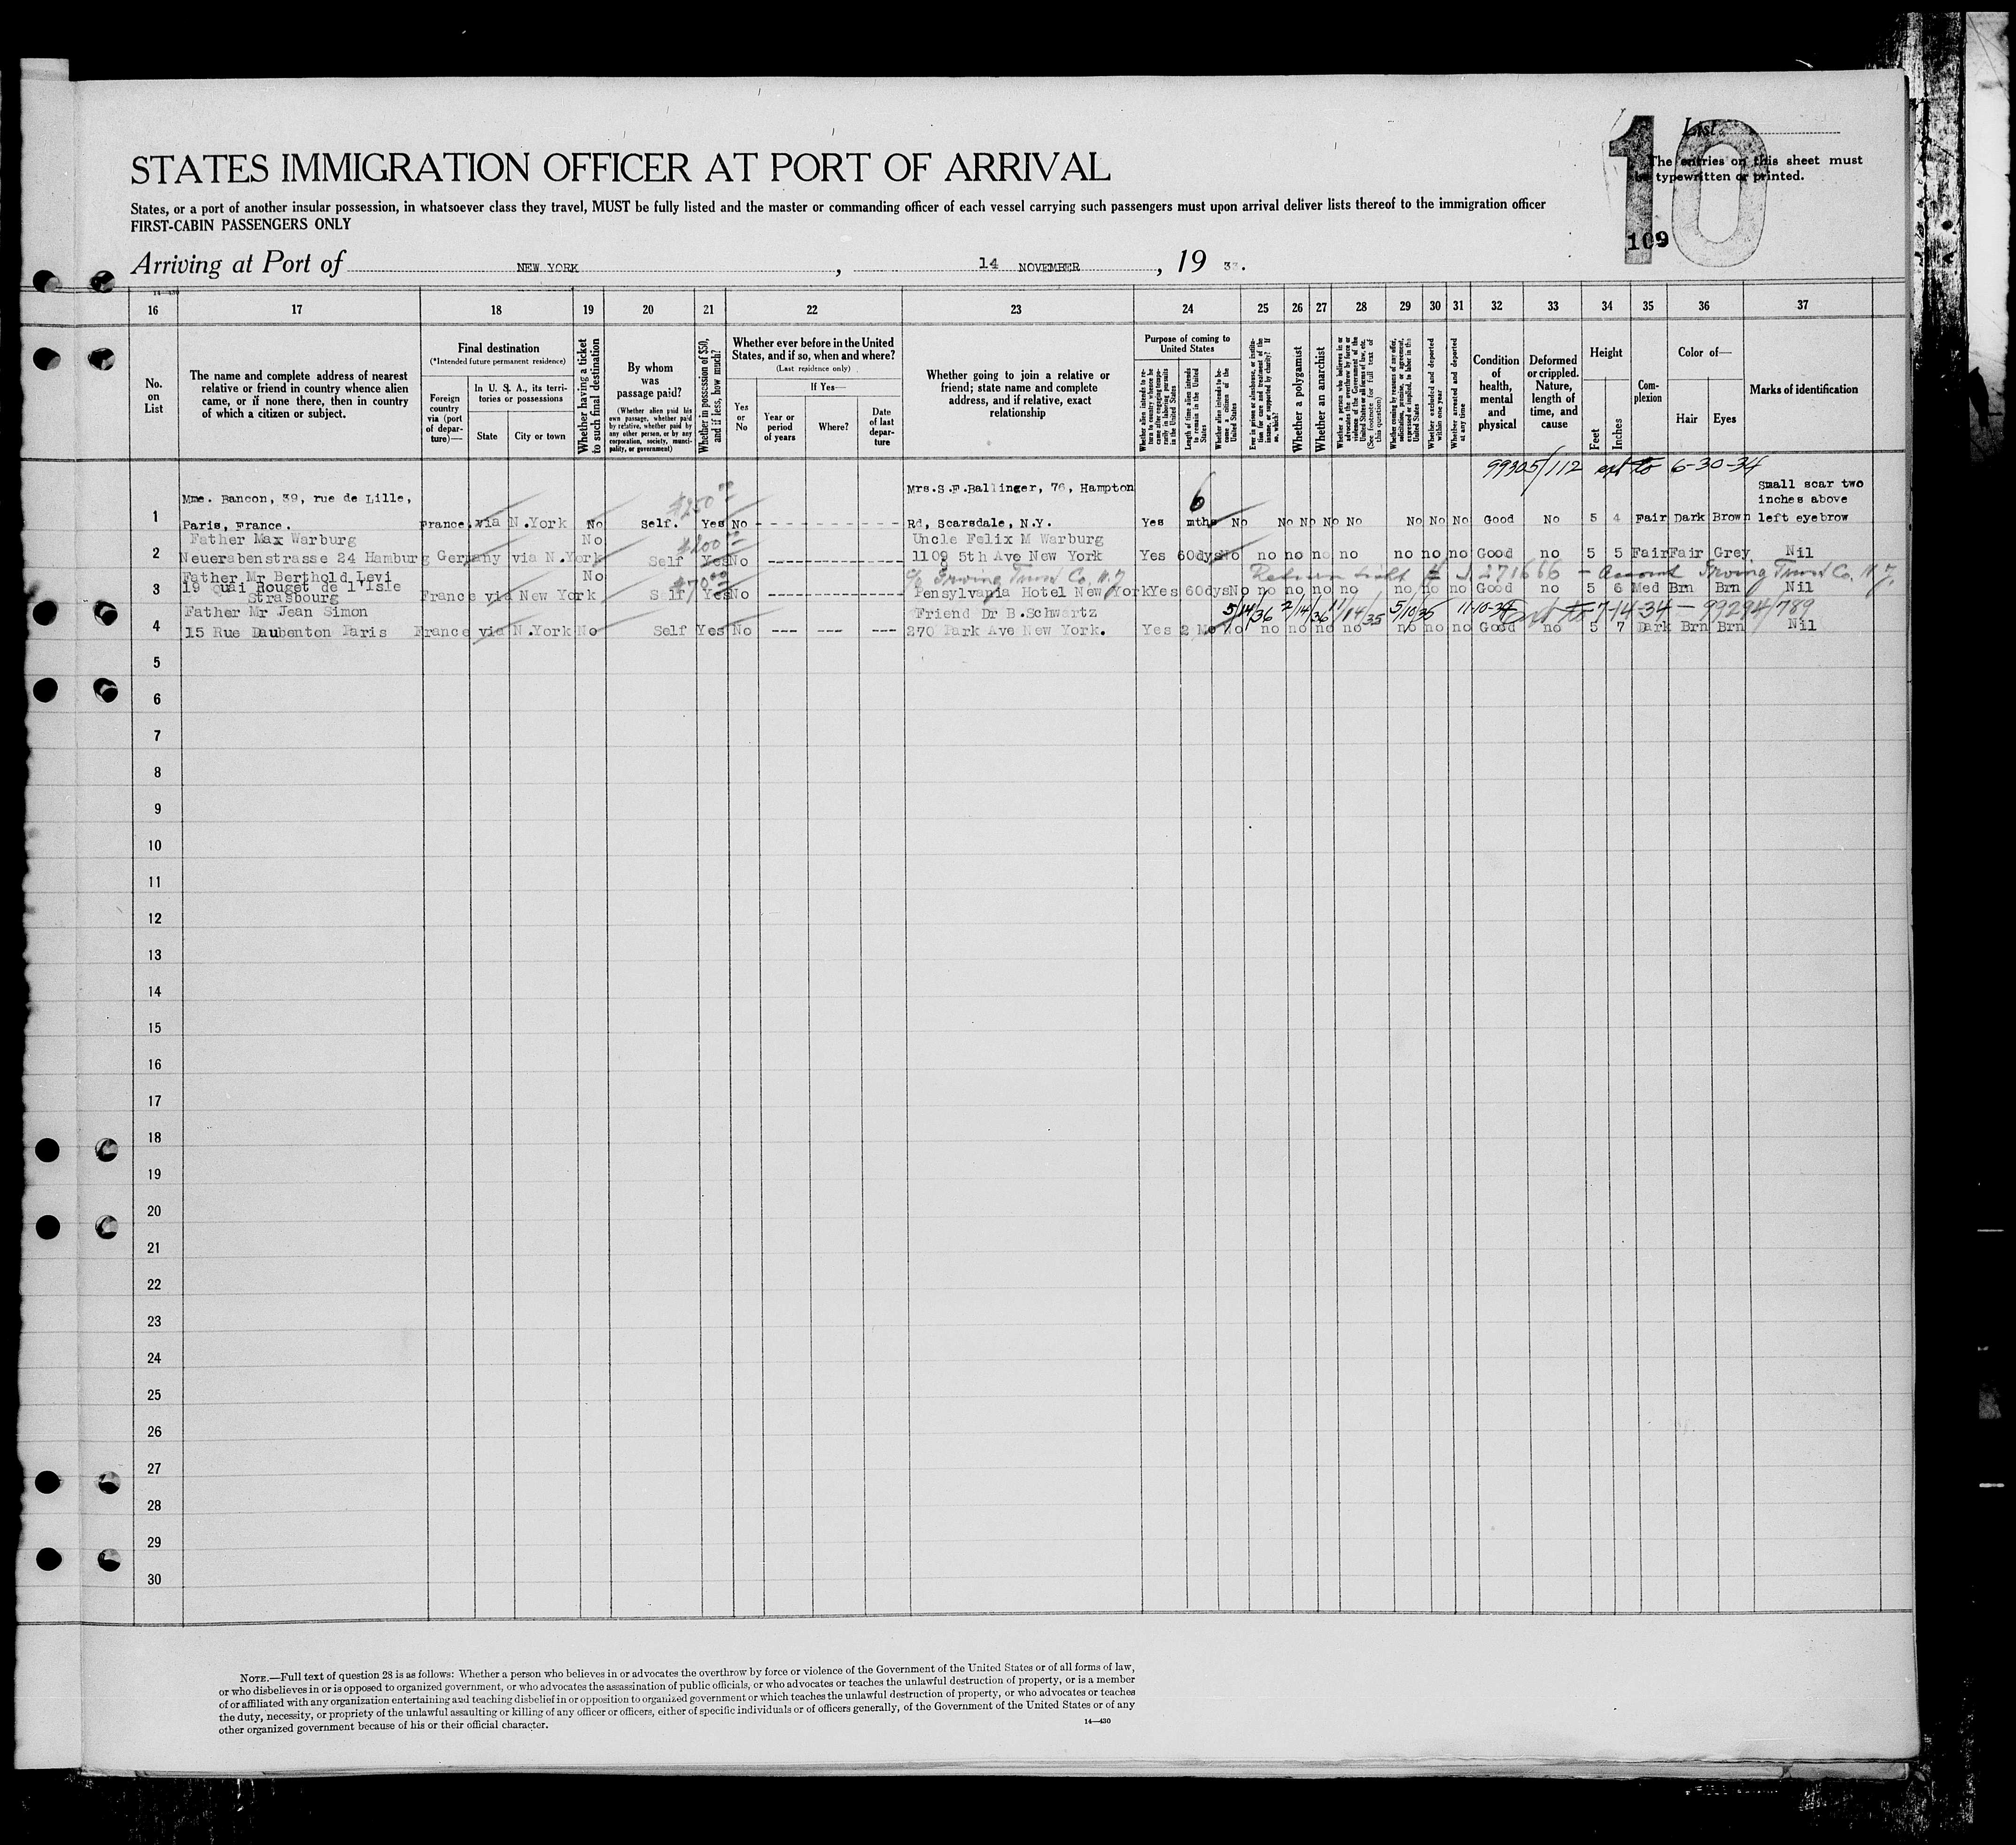 List
10
The entries on this sheet must
be typewritten or printed.
109
STATES IMMIGRATION OFFICER AT PORT OF ARRIVAL
States, or a port of another insular possession, in whatsoever class they travel, MUST be fully listed and the master or commanding officer of each vessel carrying such passengers must upon arrival deliver lists thereof to the immigration officer
FIRST-CABIN PASSENGERS ONLY
Arriving at Port of NEW YORK, 14 NOVEMBER, 19 33.
14—430
16 17 18 19 20 21 22 23 24 25 26 27 28 29 30 31 32 33 34 35 36 37
No.
on
List
The name and complete address of nearest
relative or friend in country whence alien
came, or if none there, then in country
of which a citizen or subject.
Final destination
(*Intended future permanent residence)
Foreign
country
via (port
of depar-
ture)—
In U. S. A., its terri-
tories or possessions
State
City or town
Whether having a ticket
to such final destination
By whom
was
passage paid?
(Whether alien paid his
own passage, whether paid
by relative, whether paid by
any other person, or by any
corporation, society, munici-
pality, or government)
Whether in possession of $50,
and if less, how much?
Whether ever before in the United
States, and if so, when and where?
(Last residence only)
Yes
or
No
If Yes—
Year or
period
of years
Where?
Date
of last
depar-
ture
Whether going to join a relative or
friend; state name and complete
address, and if relative, exact
relationship
Purpose of coming to
United States
Whether alien intends to re-
turn to country whence he
came after engaging tempo-
rarily in laboring pursuits
in the United States
Length of time alien intends
to remain in the United
States
Whether alien intends to be-
come a citizen of the
United States
Ever in prison or almshouse, or institu-
tion for care and treatment of the
insane, or supported by charity? If
so, which?
Whether a polygamist
Whether an anarchist
Whether a person who believes in or
advocates the overthrow by force or
violence of the Government of the
United States or all forms of law, etc.
(See footnote for full text of
this question)
Whether coming by reasons of any offer,
solicitation, promise, or agreement,
expressed or implied, to labor in the
United States
Whether excluded and deported
within one year
Whether arrested and deported
at any time
Condition
of
health,
mental
and
physical
Deformed
or crippled.
Nature,
length of
time, and
cause
Height
Feet
Inches
Com-
plexion
Color of—
Hair
Eyes
Marks of identification
99305/112 ext to 6-30-34
Mme. Bancon, 39, rue de Lille, $250 Mrs.S.F.Ballinger, 76, Hampton 6 Small scar two
inches above
1 Paris, France. France. via N.York No Self. Yes No Rd, Scarsdale, N.Y. Yes mths No No No No No No No No Good No 5 4 Fair Dark Brown left eyebrow
Father Max Warburg No $200 Uncle Felix M Warburg
2 Neuerabenstrasse 24 Hamburg Germany via N.York Self Yes No 1109 5th Ave New York Yes 60dys No no no no no no no no Good no 5 5 Fair Fair Grey Nil
Father Mr Berthold Levi No $70 c/o Irving Trust Co. N.Y. Return tickt # J 271666 - Account Irving Trust Co. N.Y.
3 19 Quai Rouget de l'Isle France via New York Self Yes No Pensylvania Hotel New York Yes 60dys No no no no no no no no Good no 5 6 Med Brn Brn Nil
Strasbourg
Father Mr Jean Simon Friend Dr B.Schwartz 5/14/36 2/14/36 11/14/35 5/10/35 11-10-34 Ext to 7-14-34 - 99294/789
4 15 Rue Daubenton Paris France via N.York No Self Yes No --- --- --- 270 Park Ave New York. Yes 2 Mo No no no no no no no no Good no 5 7 Dark Brn Brn Nil
5
6
7
8
9
10
11
12
13
14
15
16
17
18
19
20
21
22
23
24
25
26
27
28
29
30
NOTE.—Full text of question 28 is as follows: Whether a person who believes in or advocates the overthrow by force or violence of the Government of the United States or of all forms of law,
or who disbelieves in or is opposed to organized government, or who advocates the assassination of public officials, or who advocates or teaches the unlawful destruction of property, or is a member
of or affiliated with any organization entertaining and teaching disbelief in or opposition to organized government or which teaches the unlawful destruction of property, or who advocates or teaches
the duty, necessity, or propriety of the unlawful assaulting or killing of any officer or officers, either of specific individuals or of officers generally, of the Government of the United States or of any
other organized government because of his or their official character.
14—430